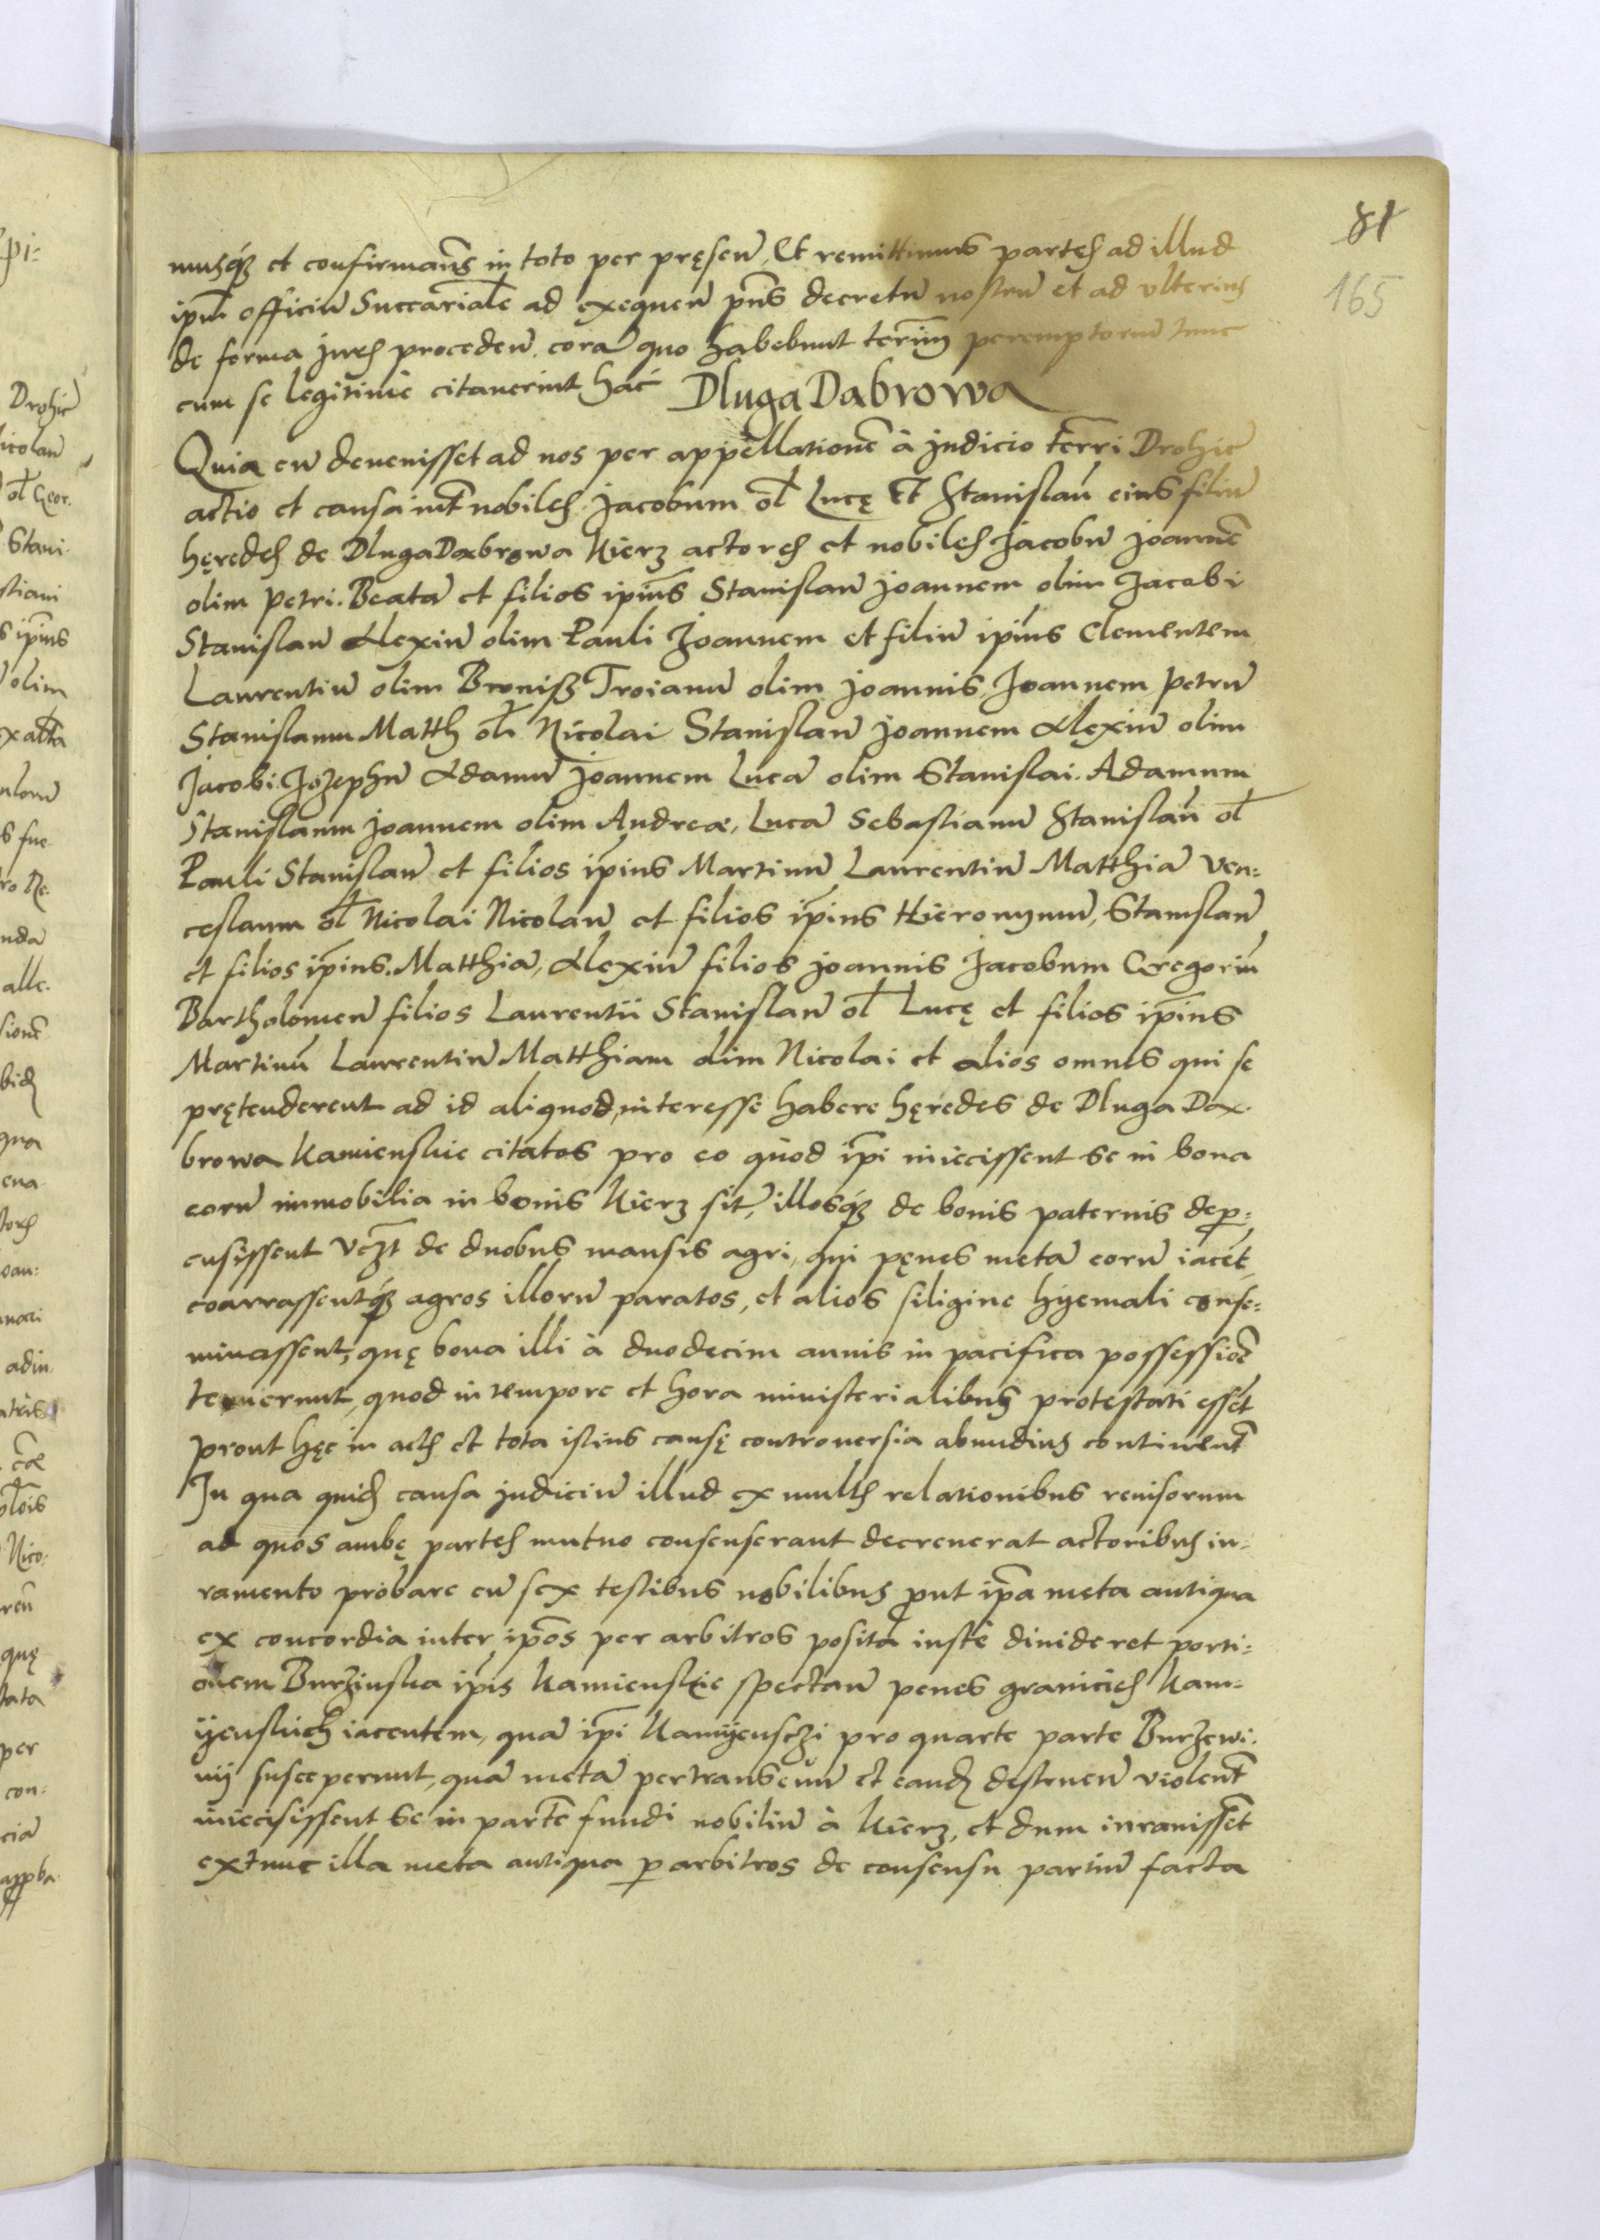 81
165
musq3 et confirmam9 in toto per pręsen̄. Et remittimus partes ad illud
ipm̄ officiū Succariale ad exequen̄ pn̄s decretū nostrū et ad vlterius
de forma jures proceden̄. corā quo habebunt termin̄ peremptoriū tunc
cum se legitime citaverint hac̄ Dluga Dabrowa
Quia cū devenisset ad nos per appellationē à judicio terrī Drohic̄
actio et causa int̄ nobiles Jacobum ol̄ Lucę Et Stanislaū eius filiū
hęredes de Dluga Dabrowa Kierz actores et nobiles Jacobū Joannē
olim Petri. Beatā et filios ipīus Stanislaū Joannem olim Jacobi
Stanislaū Alexiū olim Pauli Joannem et filiū ipīus Clementem
Laurentiū olim Bronisz Troianū olim Joannis, Joannem Petrū
Stanislaum Matth ol̄ Nicolai Stanislaū Joannem Alexiū olim
Jacobi. Jozephū Adamū Joannem Lucā olim Stanislai. Adamum
Stanislaum Joannem olim Andreæ, Lucā Sebastianū Stanislaū ol̄
Pauli Stanislaū et filios ipīus Martinū Laurentiū Matthiā Ven=
ceslaum ol̄ Nicolai Nicolaū et filios ipīus Hieronymū, Stanislaū
et filios ipīus. Matthiā, Alexiū filios Joannis Jacobum Gregoriū
Bartholomeū filios Laurentii Stanislaū ol̄ Lucę et filios ipīus
Martinū Laurentiū Matthiam olim Nicolai et alios omnes qui se
prętenderent ad id aliquod interesse habere hęredes de Dluga Dax.
browa Kamienskie citatos pro eo quod ip̄i iniecissent se in bona
eorū immobilia in bonis Kierz sit̄, illosq3 de bonis paternis dep̱=
cusissent vcz̄t de duobus mansis agri, qui pęnes metā eorū iacēt,
coarrassentq3 agros illorū paratos, et alios siligine hyemali conse=
minassent, quę bona illi à duodecim annis in pacifica possessiōe
tenuerunt, quod in tempore et hora ministerialibus protestati essēt
prout hęc in actis et tota istius causę controversia abundius continent̄
In qua quid̄ causa judiciū illud ex multis relationibus revisorum
ad quos ambę partes mutuo consenserant decreverat actoribus iu=
ramento probare cū sex testibus nobilibus p̱ut ip̄a meta antiqua
ex concordia inter ip̄os per arbitros positā iuste divideret porti=
onem Burzinska ip̄is Kamienskie spectan̄ penes granicies Kam=
yenskich iacentem, quā ip̄i Kamyenschi pro quarte parte Burzewi.
nij susceperunt, quā metā pertranseun̄ et eand̄ destruen̄ violent̄
iniecisissent se in partē fundi nobiliū à Kierz, et dum iuravissēt
extunc illa meta antiqua p̱ arbitros de consensu partiū facta